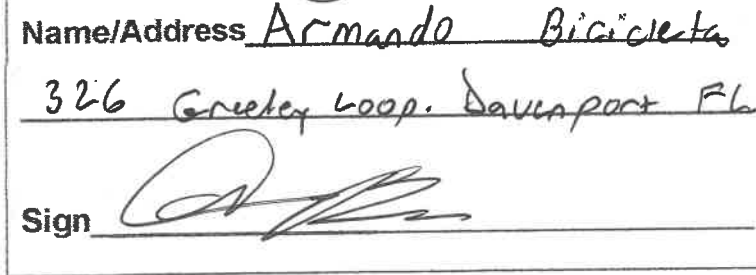 Name/Address Armando Bicicleta
326 Greeley Loop. Davenport FL
Sign